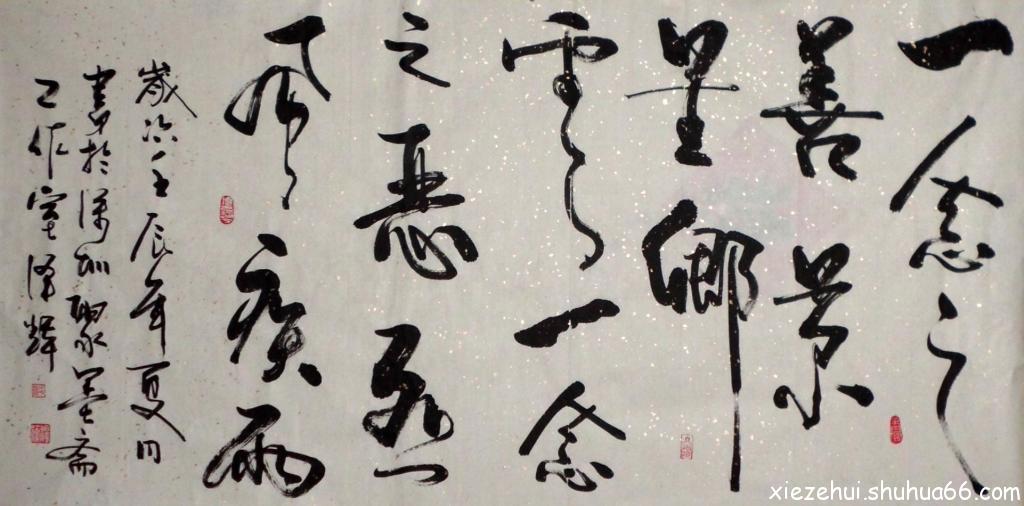 一念之
善景
星卿
雲一念
之惡烈
風疾雨
歲次壬辰年夏月
書於深圳聚墨斋
工作室澤輝
xiezehui.shuhua66.com